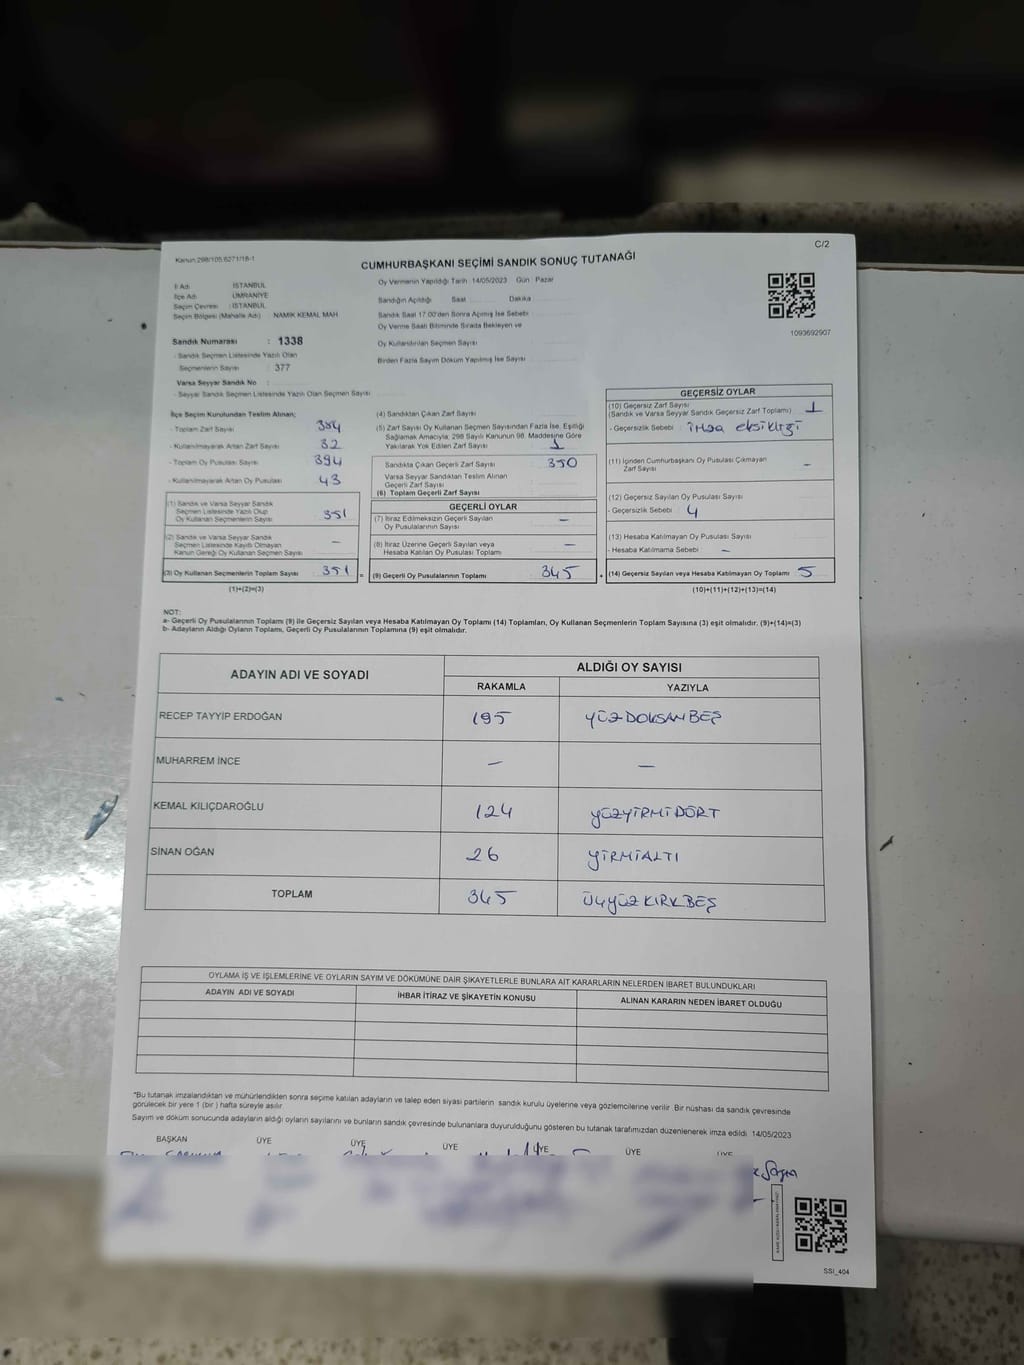 C/2
Kanun 298/105,6271/18-1
CUMHURBAŞKANI SEÇİMİ SANDIK SONUÇ TUTANAĞI
İl Adı : İSTANBUL
İlçe Adı : ÜMRANİYE
Seçim Çevresi : İSTANBUL
Seçim Bölgesi (Mahalle Adı) : NAMIK KEMAL MAH
Sandık Numarası : 1338
- Sandık Seçmen Listesinde Yazılı Olan
Seçmenlerin Sayısı : 377
Varsa Seyyar Sandık No :
- Seyyar Sandık Seçmen Listesinde Yazılı Olan Seçmen Sayısı
Oy Vermenin Yapıldığı Tarih 14/05/2023 Gün : Pazar
Sandığın Açıldığı Saat Dakika
Sandık Saat 17.00'den Sonra Açılmış İse Sebebi
Oy Verme Saati Bitiminde Sırada Bekleyen ve
Oy Kullandırılan Seçmen Sayısı
Birden Fazla Sayım Döküm Yapılmış İse Sayısı
1093692907
İlçe Seçim Kurulundan Teslim Alınan;
- Toplam Zarf Sayısı 384
- Kullanılmayarak Artan Zarf Sayısı 32
- Toplam Oy Pusulası Sayısı 394
- Kullanılmayarak Artan Oy Pusulası 43
(1) Sandık ve Varsa Seyyar Sandık
Seçmen Listesinde Yazılı Olup
Oy Kullanan Seçmenlerin Sayısı 351
(2) Sandık ve Varsa Seyyar Sandık
Seçmen Listesinde Kayıtlı Olmayan
Kanun Gereği Oy Kullanan Seçmen Sayısı –
(3) Oy Kullanan Seçmenlerin Toplam Sayısı 351 =
(1)+(2)=(3)
(4) Sandıktan Çıkan Zarf Sayısı
(5) Zarf Sayısı Oy Kullanan Seçmen Sayısından Fazla İse, Eşitliği
Sağlamak Amacıyla; 298 Sayılı Kanunun 98. Maddesine Göre
Yakılarak Yok Edilen Zarf Sayısı 1
Sandıkta Çıkan Geçerli Zarf Sayısı 350
Varsa Seyyar Sandıktan Teslim Alınan
Geçerli Zarf Sayısı
(6) Toplam Geçerli Zarf Sayısı
GEÇERLİ OYLAR
(7) İtiraz Edilmeksizin Geçerli Sayılan
Oy Pusulalarının Sayısı –
(8) İtiraz Üzerine Geçerli Sayılan veya
Hesaba Katılan Oy Pusulası Toplamı –
(9) Geçerli Oy Pusulalarının Toplamı 345 +
GEÇERSİZ OYLAR
(10) Geçersiz Zarf Sayısı
(Sandık ve Varsa Seyyar Sandık Geçersiz Zarf Toplamı) 1
- Geçersizlik Sebebi : imza eksikliği
(11) İçinden Cumhurbaşkanı Oy Pusulası Çıkmayan
Zarf Sayısı –
(12) Geçersiz Sayılan Oy Pusulası Sayısı
- Geçersizlik Sebebi : 4
(13) Hesaba Katılmayan Oy Pusulası Sayısı
- Hesaba Katılmama Sebebi : –
(14) Geçersiz Sayılan veya Hesaba Katılmayan Oy Toplamı 5
(10)+(11)+(12)+(13)=(14)
NOT:
a- Geçerli Oy Pusulalarının Toplamı (9) ile Geçersiz Sayılan veya Hesaba Katılmayan Oy Toplamı (14) Toplamları, Oy Kullanan Seçmenlerin Toplam Sayısına (3) eşit olmalıdır. (9)+(14)=(3)
b- Adayların Aldığı Oyların Toplamı, Geçerli Oy Pusulalarının Toplamına (9) eşit olmalıdır.
ADAYIN ADI VE SOYADI
ALDIĞI OY SAYISI
RAKAMLA YAZIYLA
RECEP TAYYİP ERDOĞAN 195 YÜZDOKSANBEŞ
MUHARREM İNCE – –
KEMAL KILIÇDAROĞLU 124 YÜZYİRMİDÖRT
SİNAN OĞAN 26 YİRMİALTI
TOPLAM 345 ÜÇYÜZKIRKBEŞ
OYLAMA İŞ VE İŞLEMLERİNE VE OYLARIN SAYIM VE DÖKÜMÜNE DAİR ŞİKAYETLERLE BUNLARA AİT KARARLARIN NELERDEN İBARET BULUNDUKLARI
ADAYIN ADI VE SOYADI İHBAR İTİRAZ VE ŞİKAYETİN KONUSU ALINAN KARARIN NEDEN İBARET OLDUĞU
*Bu tutanak imzalandıktan ve mühürlendikten sonra seçime katılan adayların ve talep eden siyasi partilerin sandık kurulu üyelerine veya gözlemcilerine verilir. Bir nüshası da sandık çevresinde
görülecek bir yere 1 (bir) hafta süreyle asılır.
Sayım ve döküm sonucunda adayların aldığı oyların sayılarını ve bunların sandık çevresinde bulunanlara duyurulduğunu gösteren bu tutanak tarafımızdan düzenlenerek imza edildi. 14/05/2023
BAŞKAN ÜYE ÜYE ÜYE ÜYE ÜYE ÜYE
SSI_404